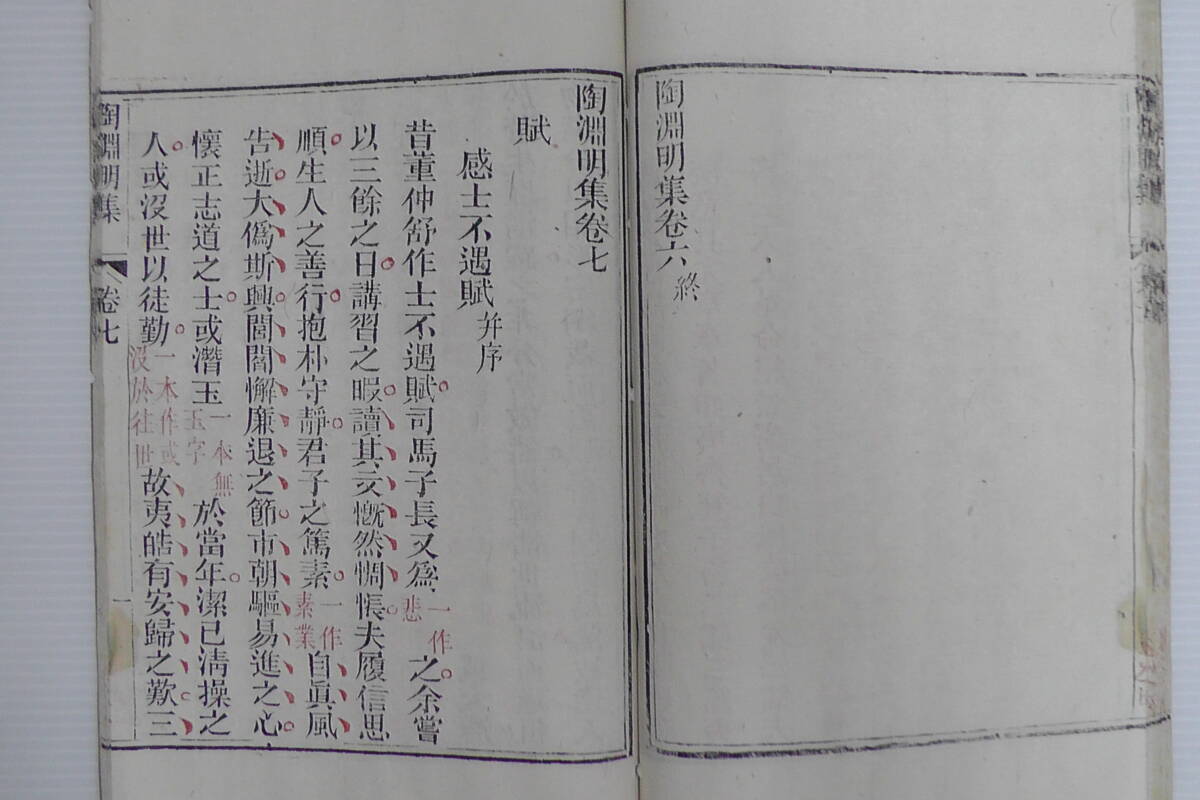 陶淵明集卷六終
陶淵明集卷七
賦
感士不遇賦并序
昔董仲舒作士不遇賦。司馬子長又爲一作悲之。余嘗
以三餘之日。講習之暇。讀其文。慨然惆悵。夫履信思
順。生人之善行。抱朴守靜。君子之篤素。一作素業自眞風
告逝。大僞斯興。閭閻懈廉退之節。市朝驅易進之心。
懷正志道之士。或潛玉一本無玉字於當年。潔己淸操之
人。或沒世以徒勤。一本作或沒於往世故夷皓有安歸之歎。三
陶淵明集 卷七 一